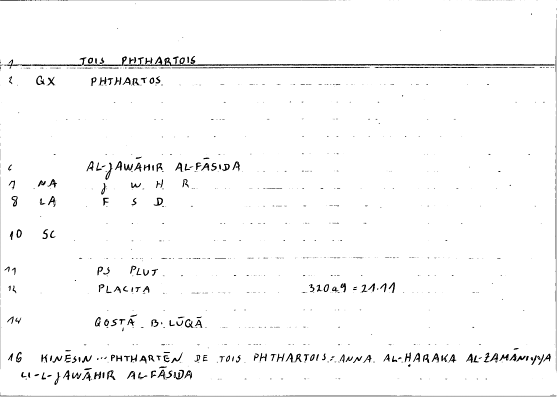 1 TOIS PHTHARTOIS
2 GX PHTHARTOS
6 AL-JAWĀHIR AL-FĀSIDA
7 NA J W H R
8 LA F S D
10 SC
11 PS PLUT
12 PLACITA 320a9 = 21.11
14 QOSṬĀ B. LŪQĀ
16 KINĒSIN ... PHTHARTĒN DE TOIS PHTHARTOIS = ANNA AL-ḤARAKA AL-ZAMĀNIYYA
LI-L-JAWĀHIR AL-FĀSIDA